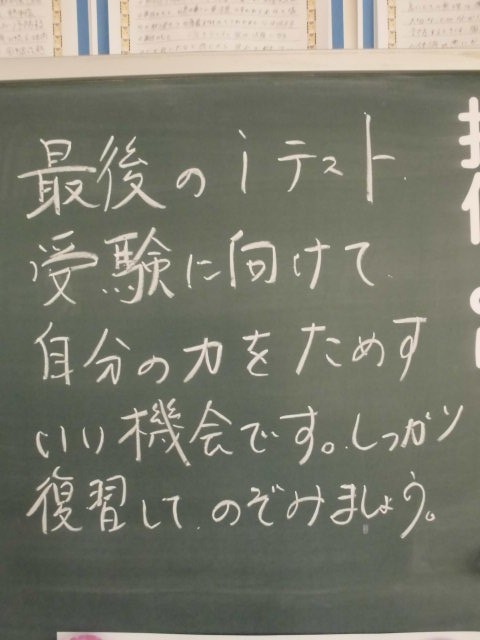 最後のiテスト
受験に向けて
自分の力をためす
いい機会です。しっかり
復習して、のぞみましょう。